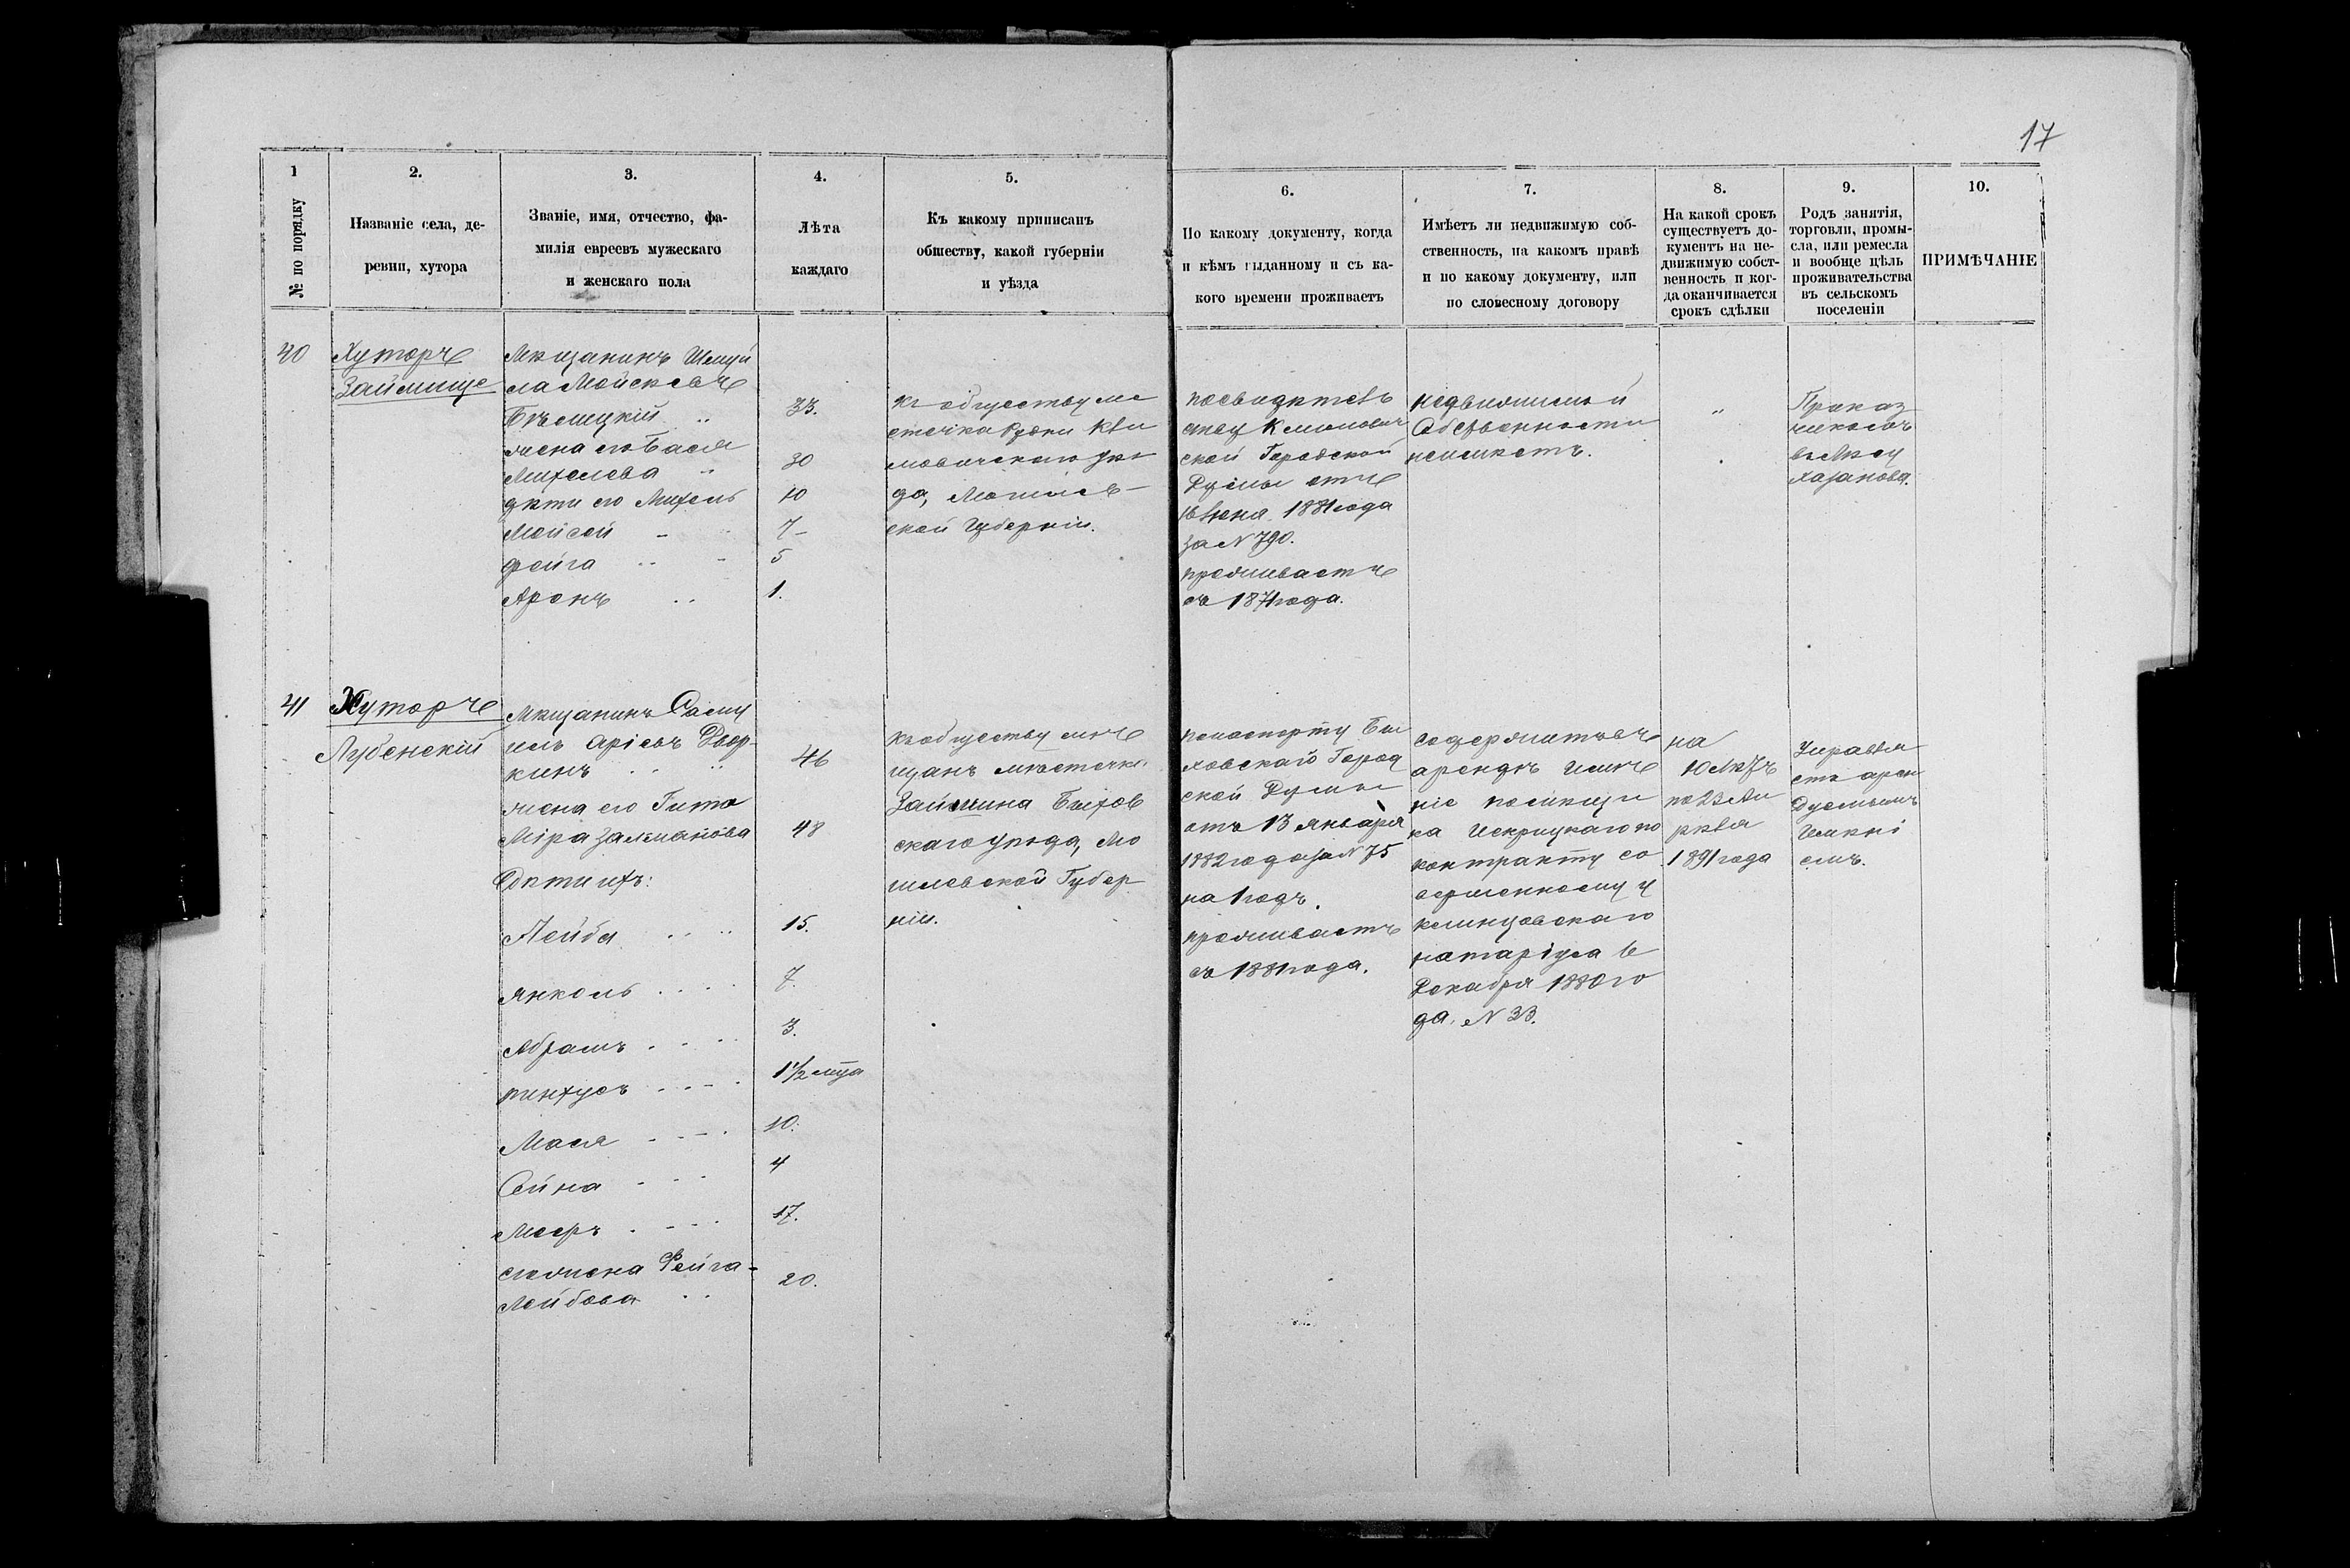 17
1
№ по порядку
2.
Названіе села, де-
ревни, хутора
3.
Званіе, имя, отчество, фа-
милія евреевъ мужескаго
и женскаго пола
4.
Лѣта
каждаго
5.
Къ какому приписанъ
обществу, какой губерніи
и уѣзда
6.
По какому документу, когда
и кѣмъ выданному и съ ка-
кого времени проживаетъ
7.
Имѣетъ ли недвижимую соб-
ственность, на какомъ правѣ
и по какому документу, или
по словесному договору
8.
На какой срокъ
существуетъ до-
кументъ на не-
движимую собст-
венность и ког-
да оканчивается
срокъ сдѣлки
9.
Родъ занятія,
торговли, промы-
сла, или ремесла
и вообще цѣль
проживательства
въ сельскомъ
поселеніи
10.
ПРИМѢЧАНІЕ
40
Хуторъ
Займище
Мѣщанинъ Шмуй
ла Мойсѣевъ
Бѣлицкій 33.
жена его Бася
Михелева 30
дѣти его Михель 10
Мойсей 7
Фейга 5
Аронъ 1.
къ обществу мѣ
стечка Кли
мовичскаго уѣз
да, Могилев
ской Губерніи.
По свидѣтель
ству Климович
ской Городской
Думы отъ
16 Іюня 1881 года
за N 790.
проживаетъ
съ 1871 года.
недвижимой
Собственности
неимѣетъ.
Приказ
чикомъ
въ лѣсу
Хазанова.
41
Хуторъ
Лубенскій
Мѣщанинъ Саму
илъ Аріевъ Двор-
кинъ 46
жена его Гита
Мира Залманова 48
Дѣти ихъ:
Лейба 15.
Янкель 7.
Абрамъ 3.
Пинхусъ 1½ мца
Мася 10.
Сейна 4
Мееръ 17.
его жена Фейга-
Лейбова 20.
Къ обществу мѣ
щанъ мѣстечка
Быхов
скаго уѣзда, Мо
гилевской Губер
ніи.
По паспорту Бы
ховскаго Город
ской Думы
отъ 13 Января
1882 года за N 75
на 1 годъ.
проживаетъ
съ 1881 года.
содержитъ въ
арендѣ имѣ
ніе помѣщи
ка Искрицкаго по
контракту со
вершенному у
клинцовскаго
натаріуса 16
Декабря 1880 го
да, N 33.
на
10 лѣтъ
по 23 Ап
рѣля
1891 года
Управля
етъ арен
дуемымъ
Имѣні
емъ.